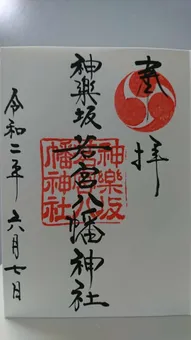 奉拝
神楽坂若宮八幡神社
神楽坂
若宮八
幡神社
令和二年六月七日